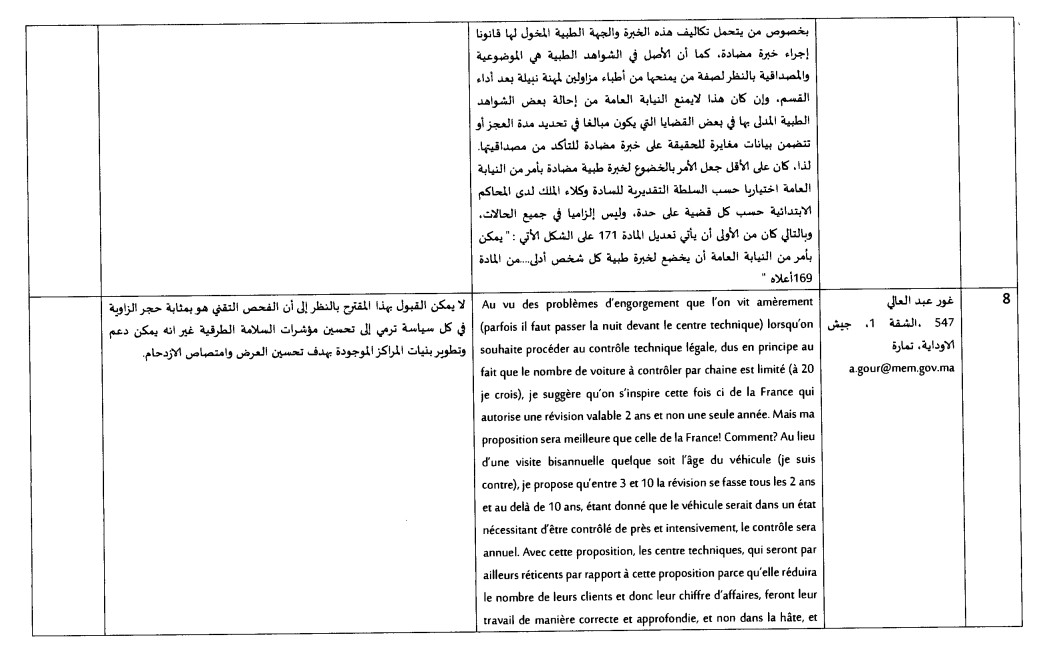 بخصوص من يتحمل تكاليف هذه الخبرة والجهة الطبية المخول لها قانونا
إجراء خبرة مضادة، كما أن الأصل في الشواهد الطبية هي الموضوعية
والمصداقية بالنظر لصفة من يمنحها من أطباء مزاولين لمهنة نبيلة بعد أداء
القسم، وإن كان هذا لايمنع النيابة العامة من إحالة بعض الشواهد
الطبية المدلى بها في بعض القضايا التي يكون مبالغا في تحديد مدة العجز أو
تتضمن بيانات مغايرة للحقيقة على خبرة مضادة للتأكد من مصداقيتها.
لذا، كان على الأقل جعل الأمر بالخضوع لخبرة طبية مضادة بأمر من النيابة
العامة اختياريا حسب السلطة التقديرية للسادة وكلاء الملك لدى المحاكم
الابتدائية حسب كل قضية على حدة، وليس إلزاميا في جميع الحالات،
وبالتالي كان من الأولى أن يأتي تعديل المادة 171 على الشكل الآتي : " يمكن
بأمر من النيابة العامة أن يخضع لخبرة طبية كل شخص أدلى....من المادة
169أعلاه "
8
غور عبد العالي
547 ،الشقة 1، جيش
الاوداية، تمارة
a.gour@mem.gov.ma
Au vu des problèmes d'engorgement que l'on vit amèrement
(parfois il faut passer la nuit devant le centre technique) lorsqu'on
souhaite procéder au contrôle technique légale, dus en principe au
fait que le nombre de voiture à contrôler par chaine est limité (à 20
je crois), je suggère qu'on s'inspire cette fois ci de la France qui
autorise une révision valable 2 ans et non une seule année. Mais ma
proposition sera meilleure que celle de la France! Comment? Au lieu
d'une visite bisannuelle quelque soit l'âge du véhicule (je suis
contre), je propose qu'entre 3 et 10 la révision se fasse tous les 2 ans
et au delà de 10 ans, étant donné que le véhicule serait dans un état
nécessitant d'être contrôlé de près et intensivement, le contrôle sera
annuel. Avec cette proposition, les centre techniques, qui seront par
ailleurs réticents par rapport à cette proposition parce qu'elle réduira
le nombre de leurs clients et donc leur chiffre d'affaires, feront leur
travail de manière correcte et approfondie, et non dans la hâte, et
لا يمكن القبول بهذا المقترح بالنظر إلى أن الفحص التقني هو بمثابة حجر الزاوية
في كل سياسة ترمي إلى تحسين مؤشرات السلامة الطرقية غير انه يمكن دعم
وتطوير بنيات المراكز الموجودة بهدف تحسين العرض وامتصاص الازدحام.